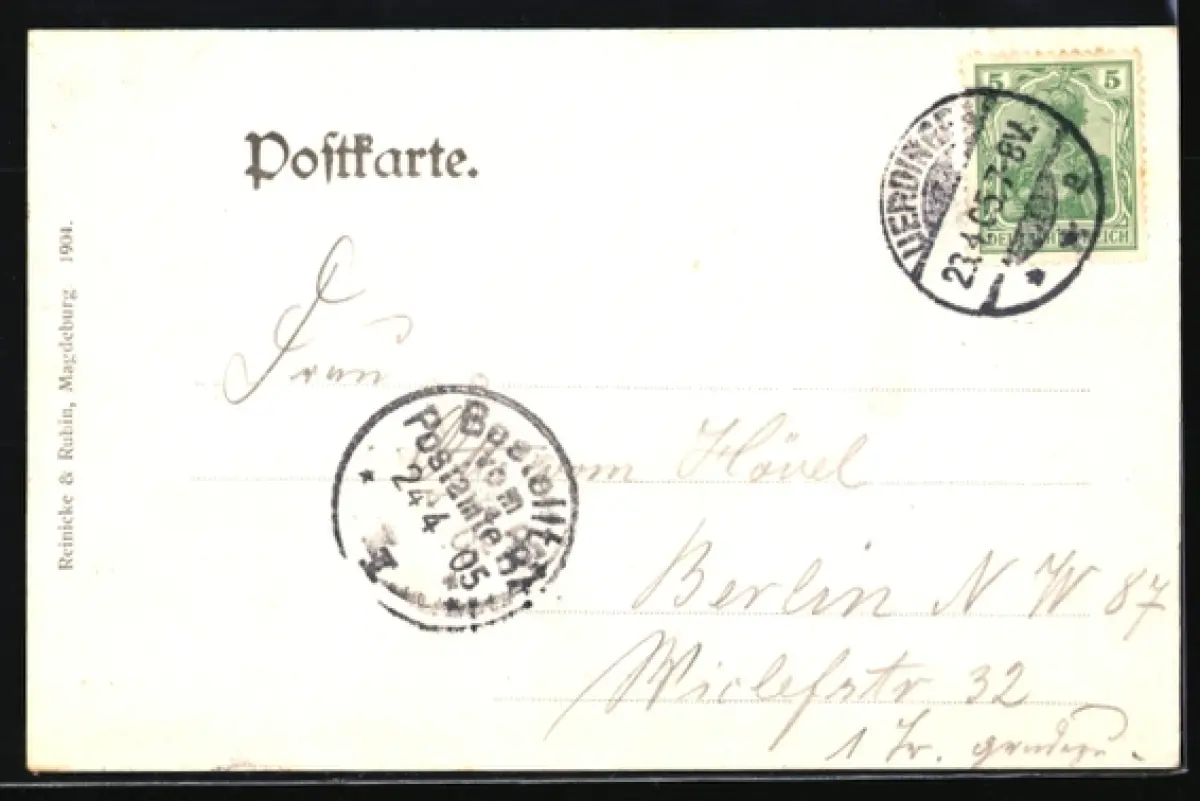 Postkarte.
5 5
DEUTSCHES REICH
UERDINGEN
23.4.05.7-8V.
Frau
vom Hövel
Bestellt
vom
Postamte 87
24 4 05
Berlin N W 87
Wiclefstr 32
1 Tr.
Reinicke & Rubin, Magdeburg 1904.